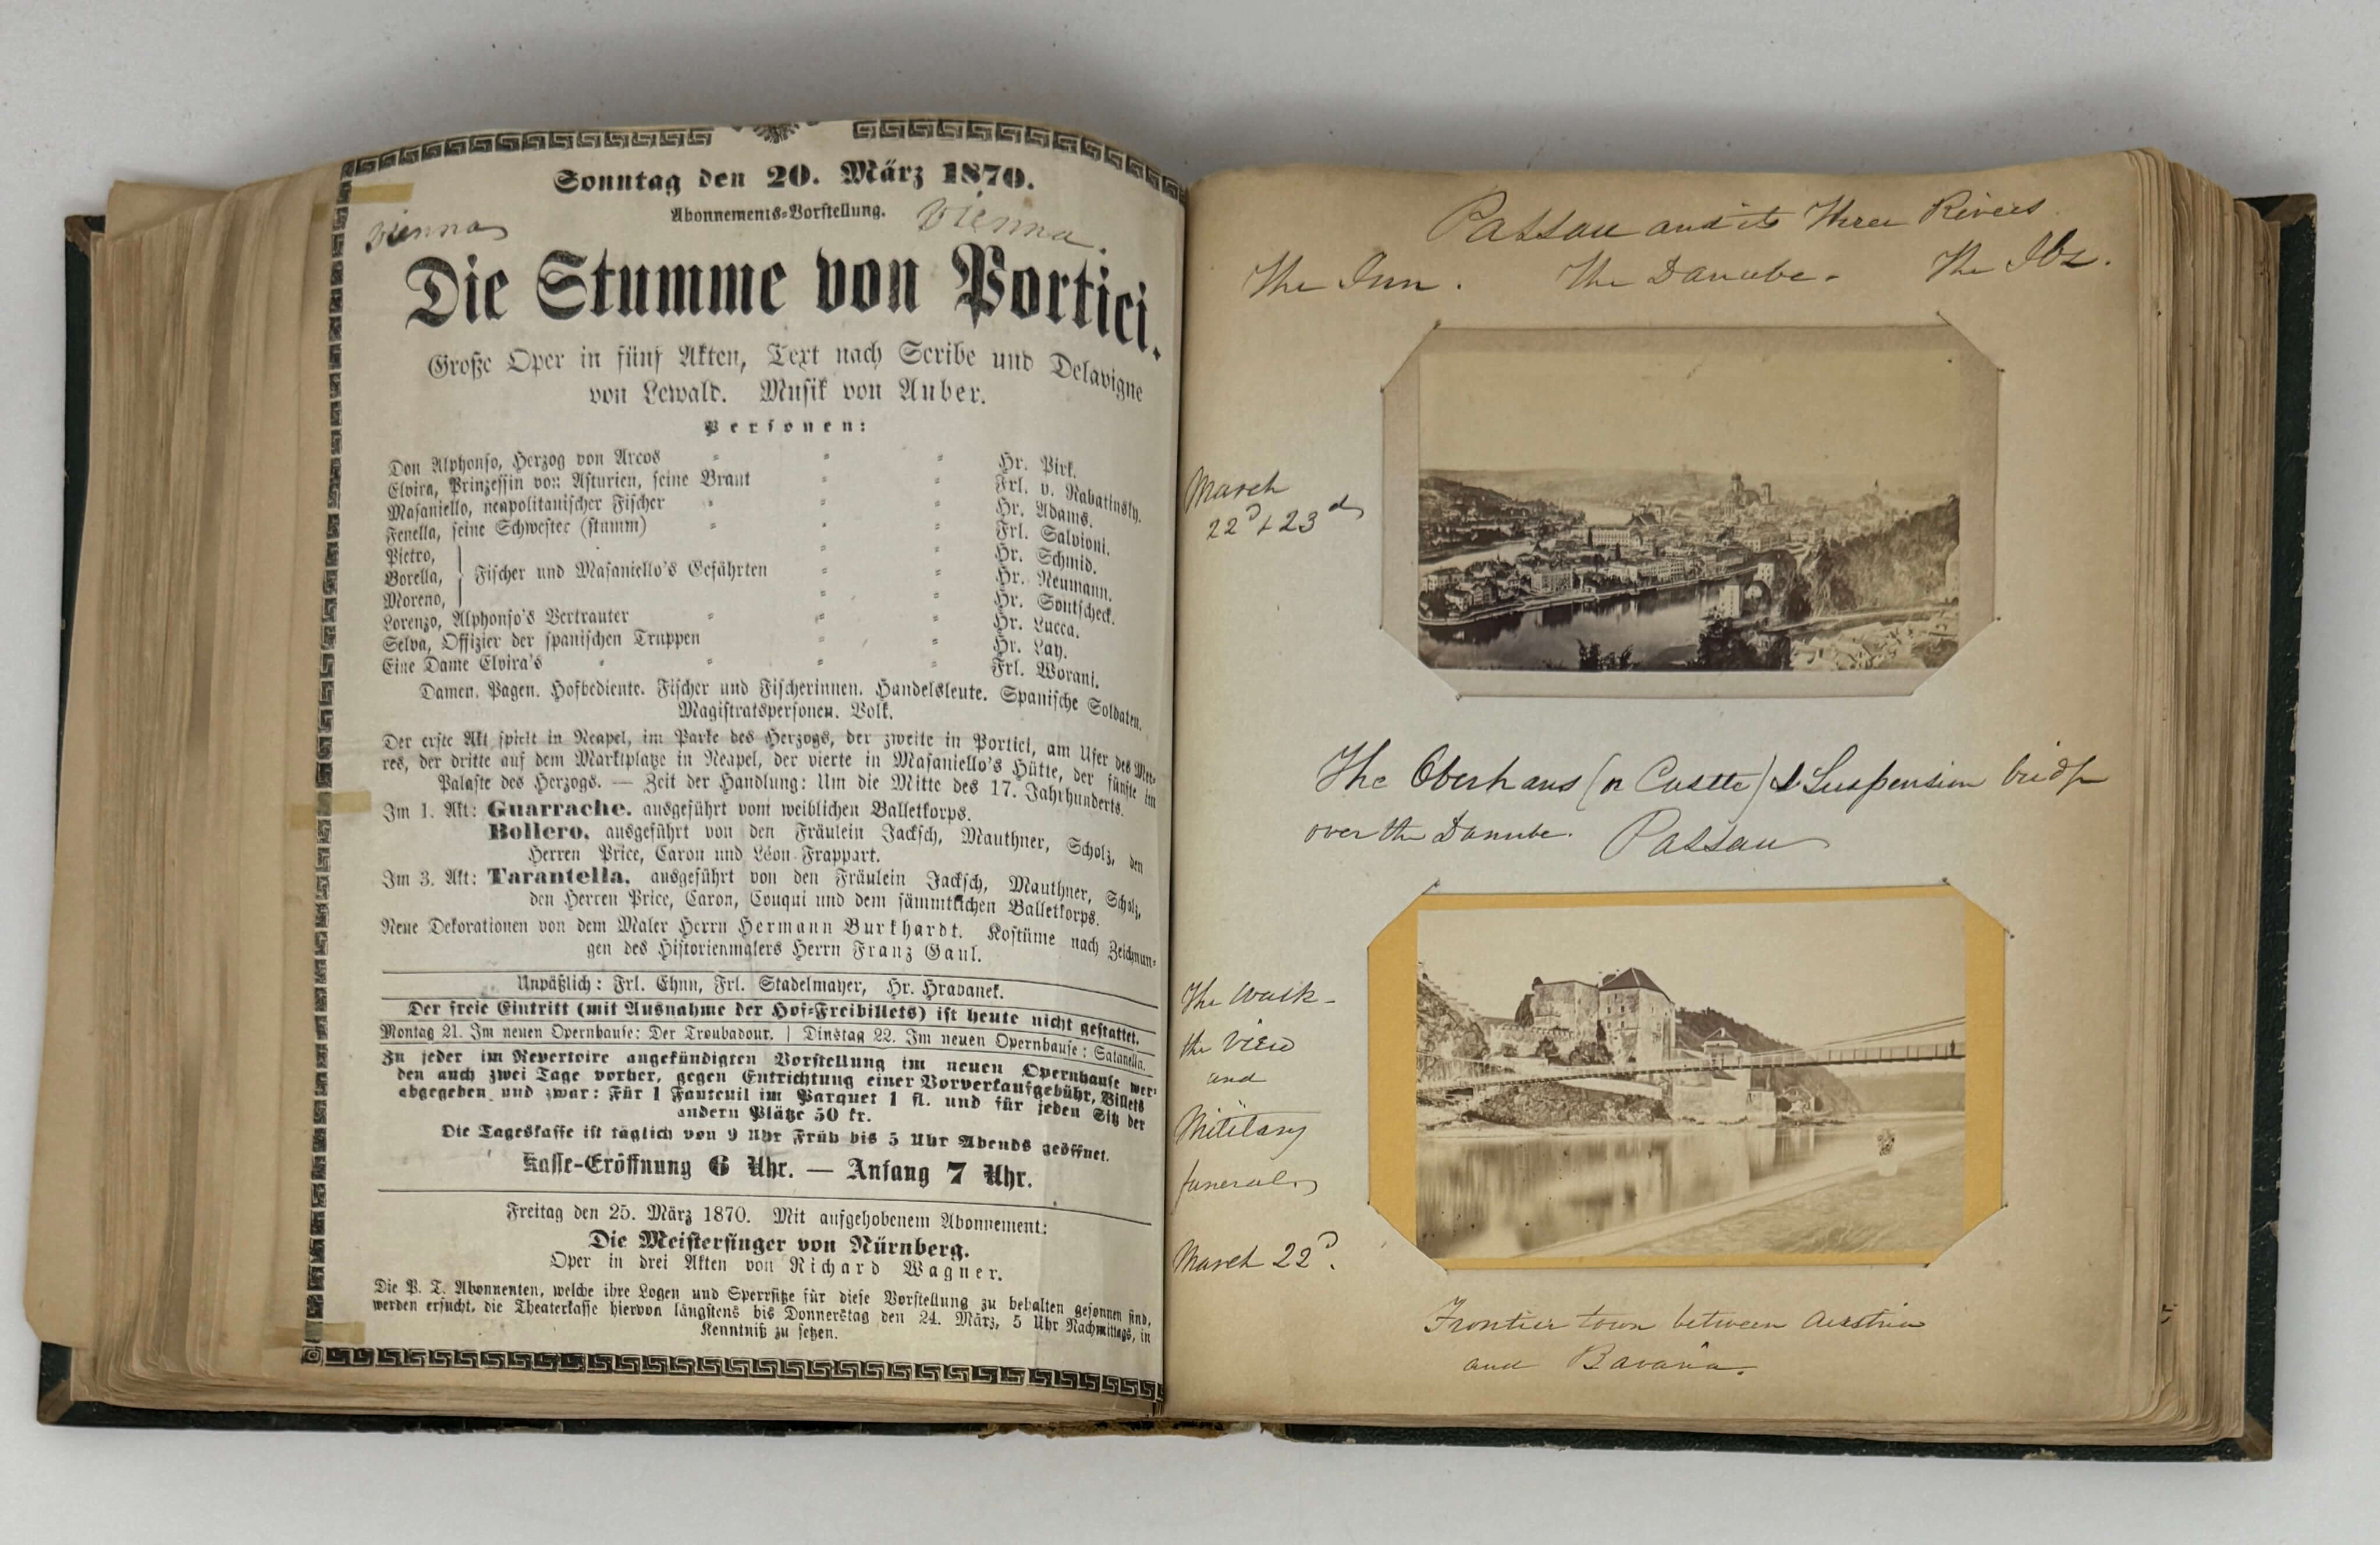 Sonntag den 20. März 1870.
Abonnements-Vorstellung.
Vienna
Vienna.
Die Stumme von Portici.
Große Oper in fünf Akten, Text nach Scribe und Delavigne
von Lewald. Musik von Auber.
Personen:
Don Alphonso, Herzog von Arcos Hr. Pirk.
Elvira, Prinzessin von Asturien, seine Braut Frl. v. Rabatinsky.
Masaniello, neapolitanischer Fischer Hr. Adams.
Fenella, seine Schwester (stumm) Frl. Salvioni.
Pietro, Hr. Schmid.
Borella, Fischer und Masaniello's Gefährten Hr. Neumann.
Moreno, Hr. Soutscheck.
Lorenzo, Alphonso's Vertrauter Hr. Lucca.
Selva, Offizier der spanischen Truppen Hr. Lay.
Eine Dame Elvira's Frl. Worani.
Damen. Pagen. Hofbediente. Fischer und Fischerinnen. Handelsleute. Spanische Soldaten.
Magistratspersonen. Volk.
Der erste Akt spielt in Neapel, im Parke des Herzogs, der zweite in Portici, am Ufer des Mee-
res, der dritte auf dem Marktplatze in Neapel, der vierte in Masaniello's Hütte, der fünfte im
Palaste des Herzogs. — Zeit der Handlung: Um die Mitte des 17. Jahrhunderts.
Im 1. Akt: Guarrache, ausgeführt vom weiblichen Balletkorps.
Bollero, ausgeführt von den Fräulein Jacksch, Mauthner, Scholz, den
Herren Price, Caron und Léon Frappart.
Im 3. Akt: Tarantella, ausgeführt von den Fräulein Jacksch, Mauthner, Scholz,
den Herren Price, Caron, Couqui und dem sämmtlichen Balletkorps.
Neue Dekorationen von dem Maler Herrn Hermann Burkhardt. Kostüme nach Zeichnun-
gen des Historienmalers Herrn Franz Gaul.
Unpäßlich: Frl. Ehnn, Frl. Stadelmayer, Hr. Hrabanek.
Der freie Eintritt (mit Ausnahme der Hof-Freibillets) ist heute nicht gestattet.
Montag 21. Im neuen Opernhause: Der Troubadour. | Dinstag 22. Im neuen Opernhause: Satanella.
Zu jeder im Repertoire angekündigten Vorstellung im neuen Opernhause wer-
den auch zwei Tage vorher, gegen Entrichtung einer Vorverkaufsgebühr, Billets
abgegeben und zwar: Für 1 Fauteuil im Parquet 1 fl. und für jeden Sitz der
andern Plätze 50 kr.
Die Tageskasse ist täglich von 9 Uhr Früh bis 5 Uhr Abends geöffnet.
Kasse-Eröffnung 6 Uhr. — Anfang 7 Uhr.
Freitag den 25. März 1870. Mit aufgehobenem Abonnement:
Die Meistersinger von Nürnberg.
Oper in drei Akten von Richard Wagner.
Die P. T. Abonnenten, welche ihre Logen und Sperrsitze für diese Vorstellung zu behalten gesonnen sind,
werden ersucht, die Theaterkasse hiervon längstens bis Donnerstag den 24. März, 5 Uhr Nachmittags, in
Kenntniß zu setzen.
Passau and its Three Rivers
The Inn. The Danube. The Ilz.
March
22d & 23d
The Oberhaus (or Castle) & Suspension bridge
over the Danube. Passau
The Walk -
the View
and
Military
funeral
March 22d.
Frontier town between Austria
and Bavaria.